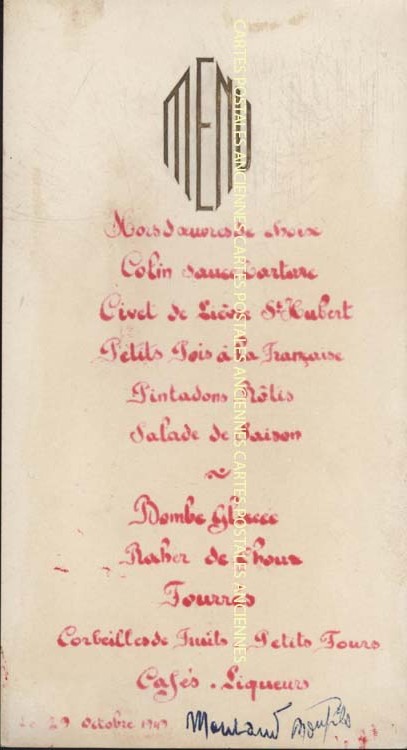 MENU
Hors d'œuvres de choix
Colin sauce Tartare
Civet de Lièvre St Hubert
Petits Pois à la Française
Pintadons Rôtis
Salade de Saison
~
Bombe Glacée
de Choux
Fourrés
Corbeilles de Fruits Petits Fours
Cafés. Liqueurs
Le 29 Octobre 1949
CARTES POSTALES ANCIENNES CARTES POSTALES ANCIENNES CARTES POSTALES ANCIENNES